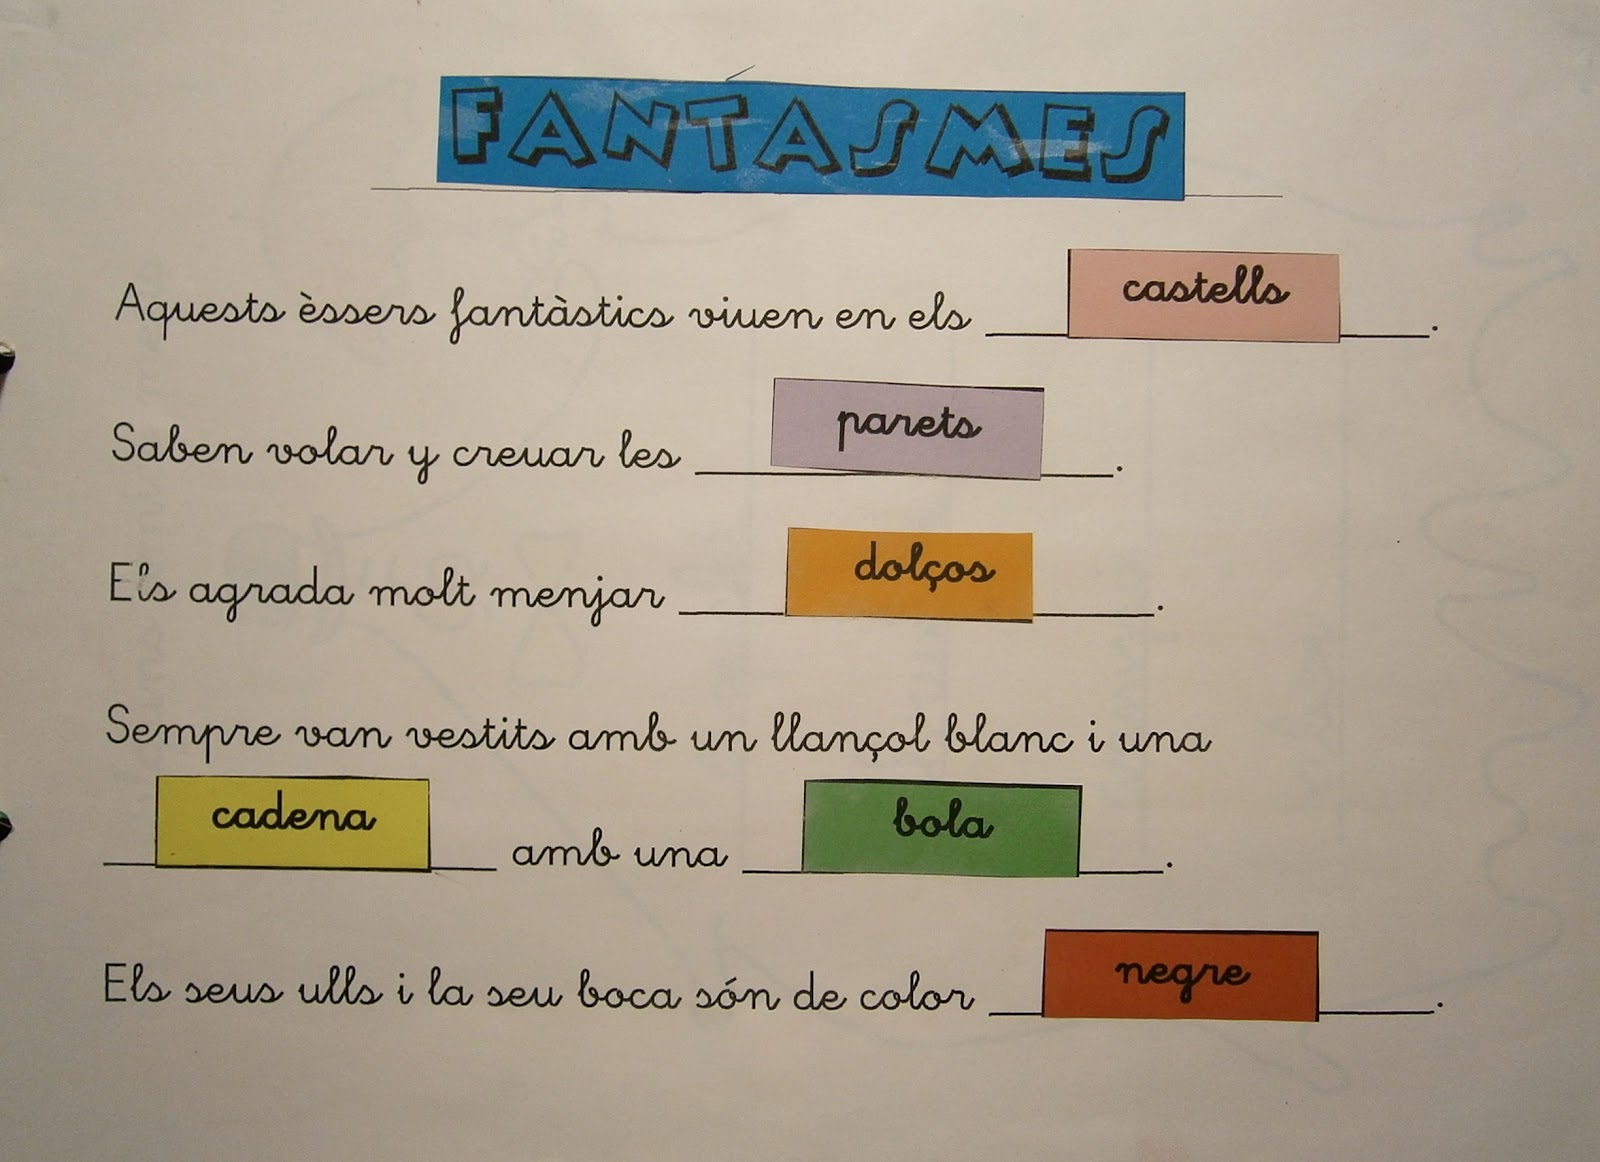 FANTASMES
Aquests èssers fantàstics viuen en els castells.
Saben volar y creuar les parets.
Els agrada molt menjar dolços.
Sempre van vestits amb un llançol blanc i una
cadena amb una bola.
Els seus ulls i la seu boca són de color negre.